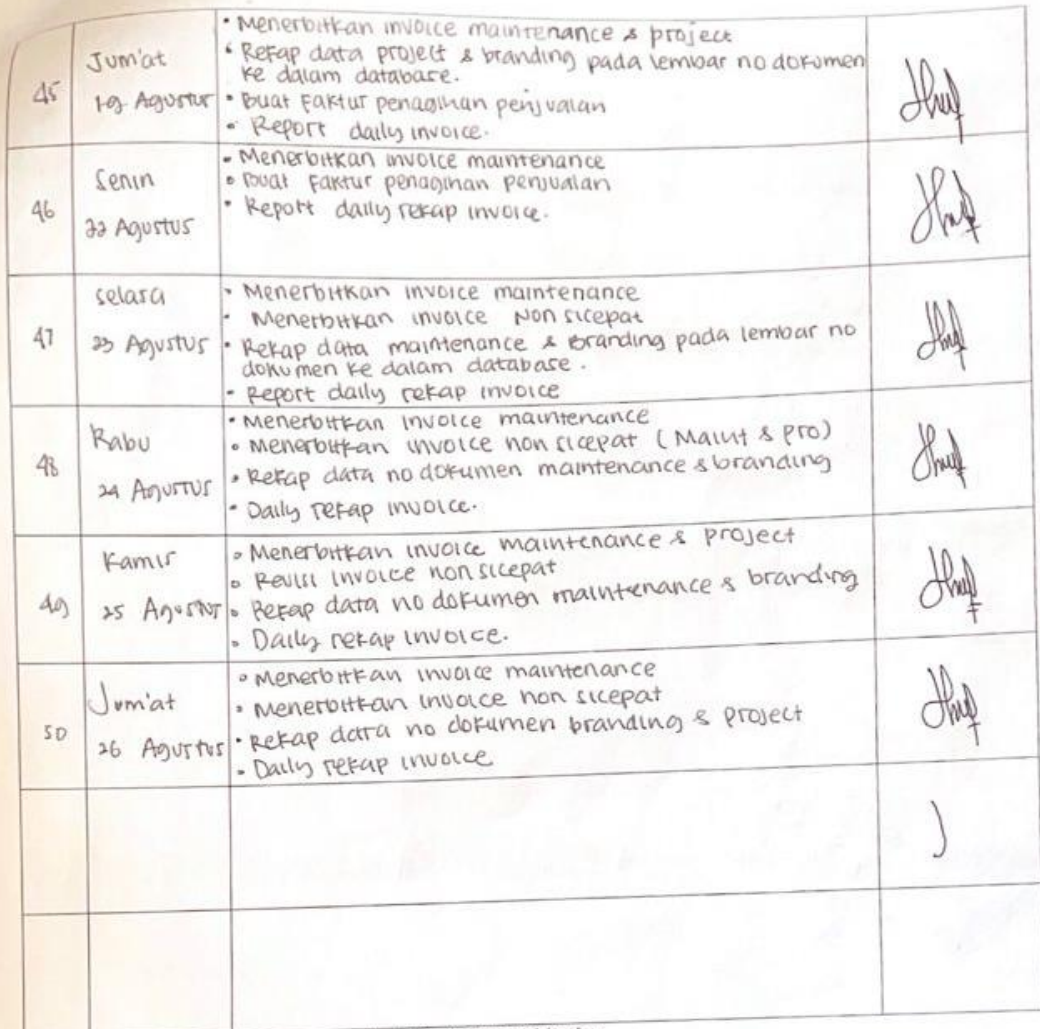 45
Jum'at
19 Agustus
• Menerbitkan invoice maintenance & project
• Rekap data project & branding pada lembar no dokumen
ke dalam database.
• Buat Faktur penagihan penjualan
• Report daily invoice.
46
Senin
22 Agustus
• Menerbitkan invoice maintenance
• Buat Faktur penagihan penjualan
• Report daily rekap invoice.
47
Selasa
23 Agustus
• Menerbitkan invoice maintenance
• Menerbitkan invoice Non sicepat
• Rekap data maintenance & branding pada lembar no
dokumen ke dalam database.
• Report daily rekap invoice
48
Rabu
24 Agustus
• Menerbitkan invoice maintenance
• Menerbitkan invoice non sicepat (Maint & pro)
• Rekap data no dokumen maintenance & branding
• Daily rekap invoice.
49
Kamis
25 Agustus
• Menerbitkan invoice maintenance & project
• Revisi invoice non sicepat
• Rekap data no dokumen maintenance & branding
• Daily rekap invoice.
50
Jum'at
26 Agustus
• Menerbitkan invoice maintenance
• Menerbitkan invoice non sicepat
• Rekap data no dokumen branding & project
• Daily rekap invoice